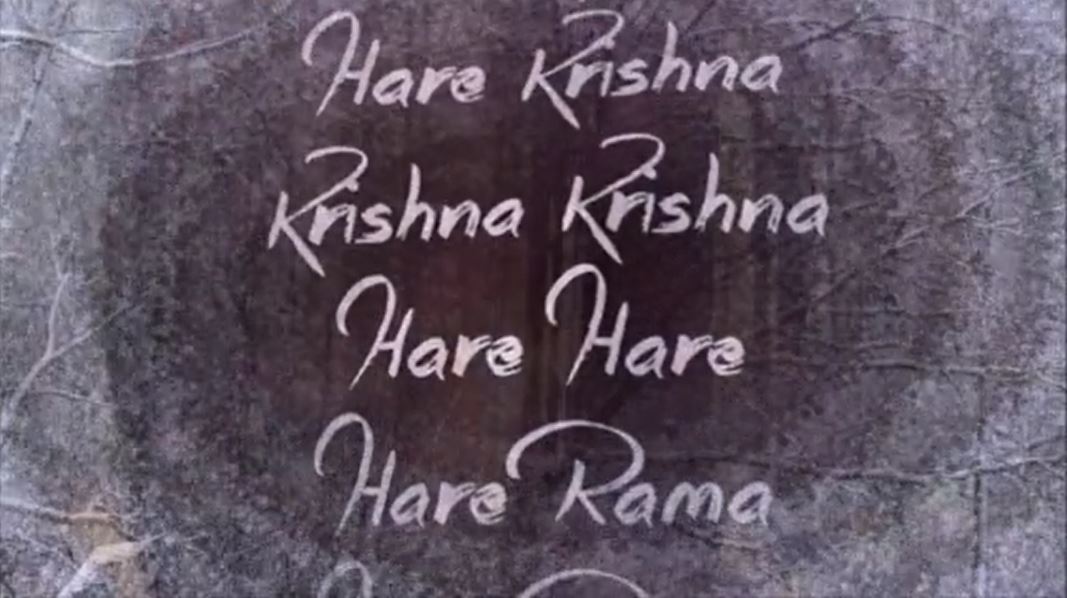 Hare Krishna
Krishna Krishna
Hare Hare
Hare Rama